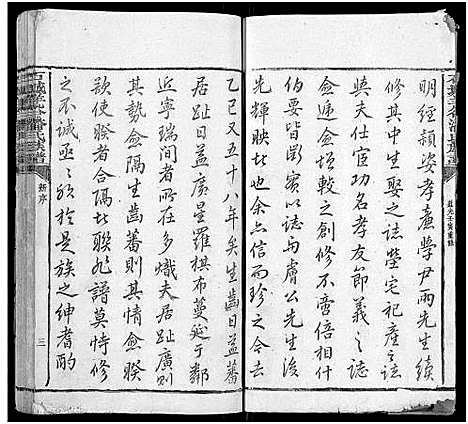 明經穎姿孝廉學尹兩先生續
修其中生娶之誌塋宅祀產之誌
與夫仕宦功名孝友節義之誌
僉遞愈增較之創修不啻倍相什
要皆斷實以誌與膚公先生後
先輝映也余亦信而珍之今去
乙巳又五十八年矣生齒日益蕃
居趾日益廣星羅棋布蔓延于鄰
近寧瑞間者所在多熾夫居趾廣則
其勢愈隔生齒蕃則其情愈睽
欲使睽者合隔者聯非譜莫恃修
之不誠亟亟於是族之紳耆酌
新序
三